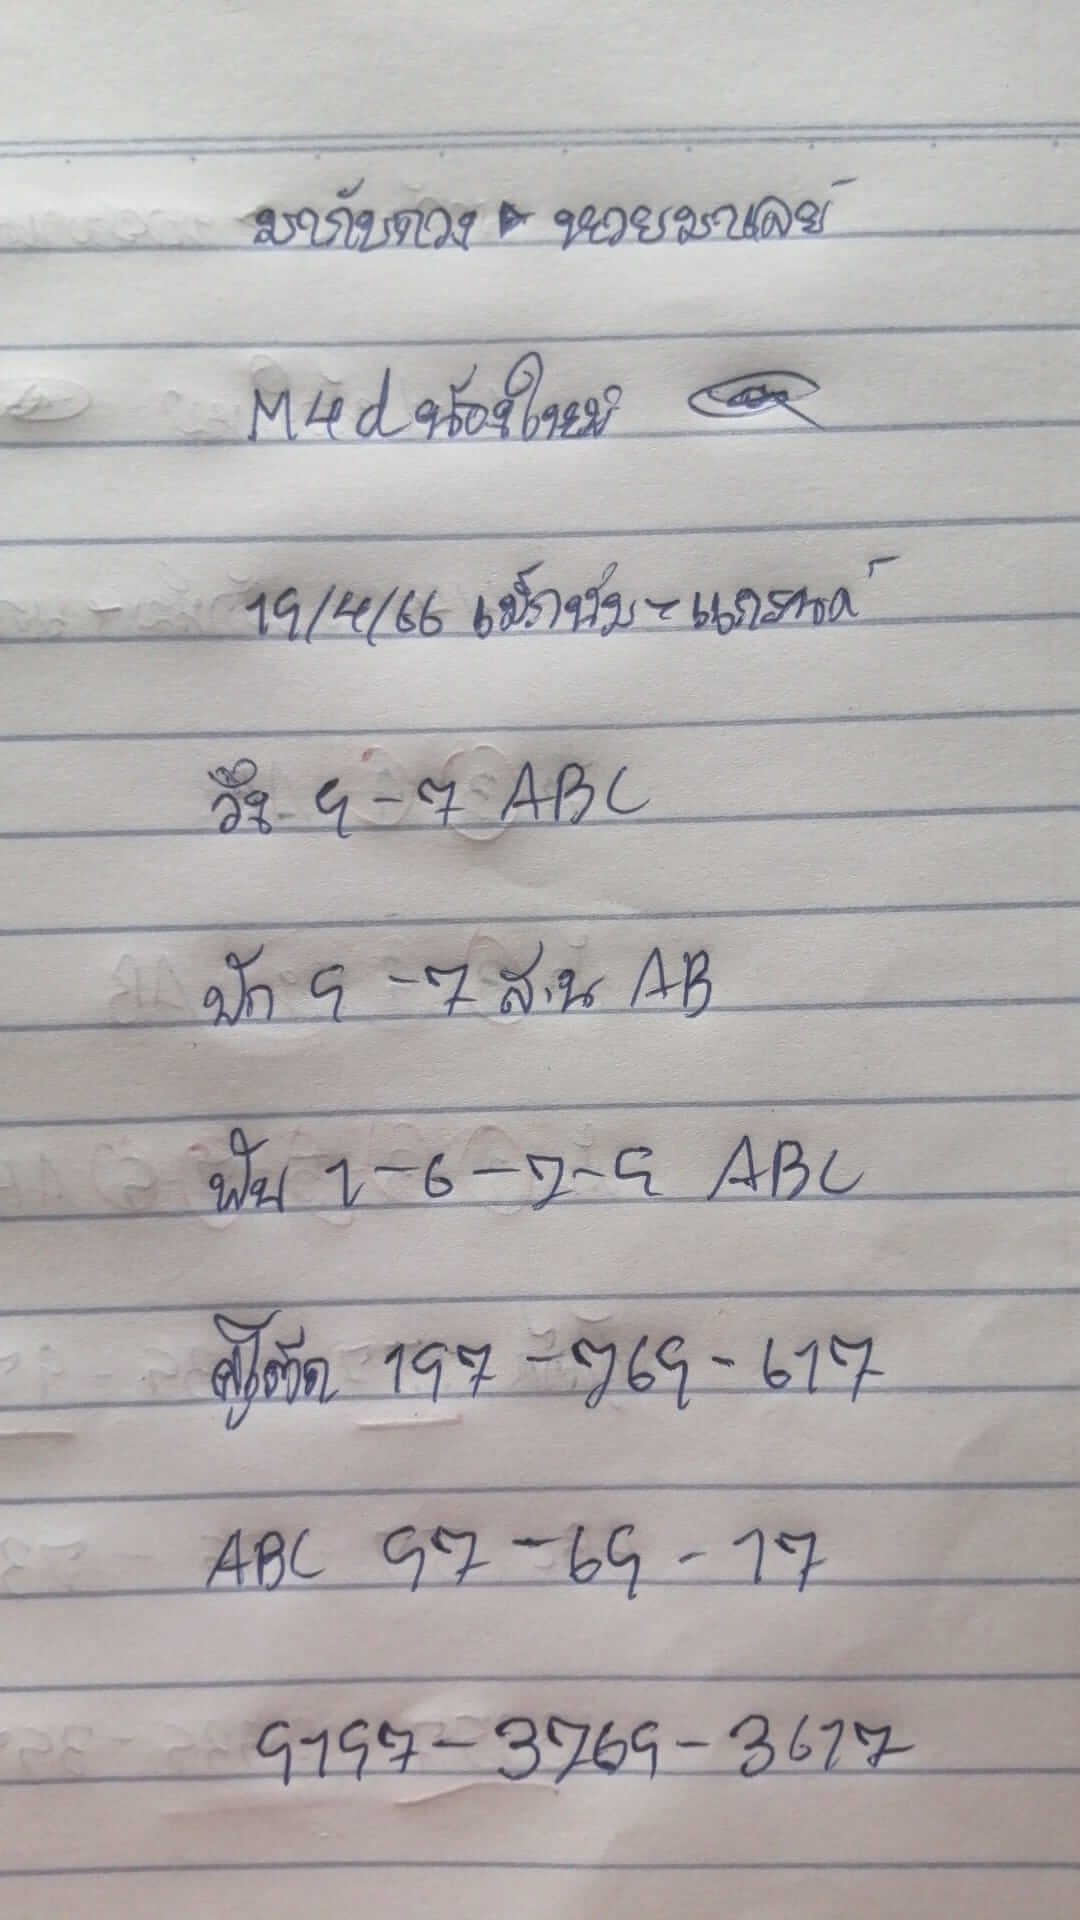 มากับดวง ▶ หวยมาเลย์
M4d น้องใหม่
19/4/66 แม็กนั่ม - แกรนด์
วิ่ง 9 - 7 ABC
ปัก 9 - 7 ส.น AB
ฟัน 1 - 6 - 7 - 9 ABC
คู่โต๊ด 197 - 769 - 617
ABC 97 - 69 - 17
9197 - 3769 - 3617